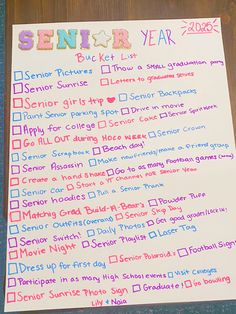 SENIOR YEAR 2025
Bucket List
Senior Pictures Throw a SMALL graduation party
Senior Sunrise Letters to graduates serves
Senior girls trip Senior Backpacks
Paint Senior parking spot Drive in movie
Apply for college Senior Cake Senior Spirit work
Go ALL OUT during Hoco week Senior Crown
Senior Scrapbook Beach day!
Senior Assassin Make new friends/make a friend group
Create a hand shake Go to as many Football games (away)
Senior car Start a YT channel for senior year
Senior hoodies Pull a Senior Prank
Matching Grad Build-A-Bear's Powder Puff
Senior Outfits (overalls) Senior Skip Day
Senior Switch! Daily Photos Get good grades/lock in!
Movie Night Senior Playlist Laser Tag
Dress up for first day Senior Polaroids Football Signs
Participate in as many High School events Visit Colleges
Senior Sunrise Photo Sign Graduate! Go bowling
Lily + Naia